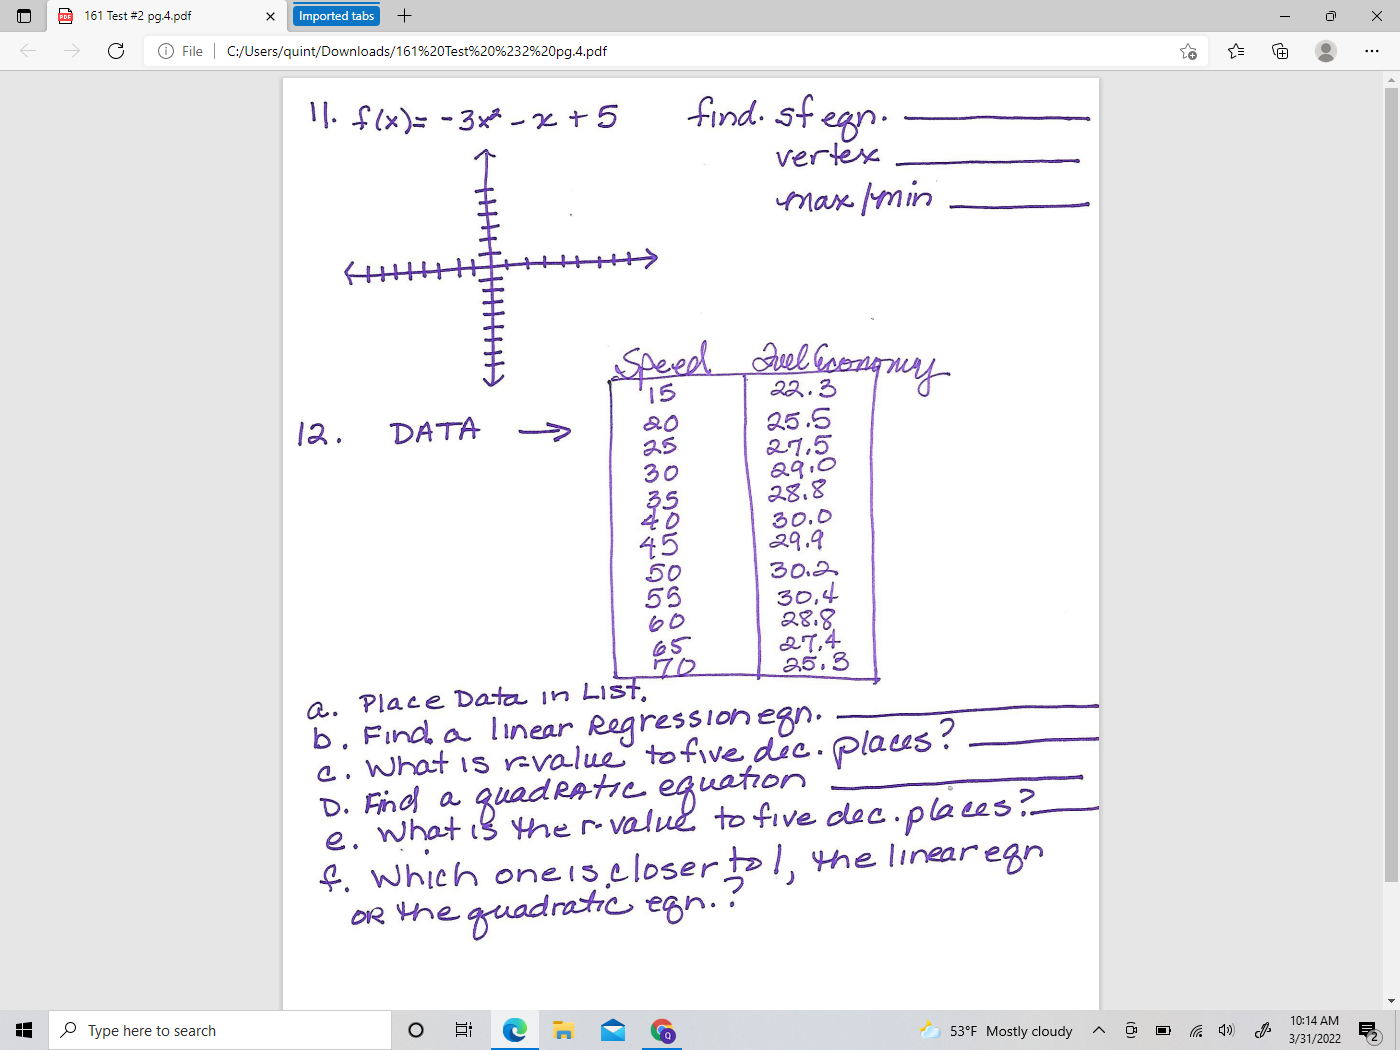 161 Test #2 pg.4.pdf
Imported tabs
File
C:/Users/quint/Downloads/161%20Test%20%232%20pg.4.pdf
11. f(x)= -3x² - x + 5 find. sf eqn.
vertex
max/min
Speed Fuel Economy
15 22.3
12. DATA →
20 25.5
25 27.5
30 29.0
35 28.8
40 30.0
45 29.9
50 30.2
55 30.4
60 28.8
65 27.4
70 25.3
a. Place Data in List.
b. Find a linear Regression eqn.
c. What is r-value to five dec. places?
D. Find a quadRatic equation
e. What is the r-value to five dec. places?
f. Which one is closer to 1, the linear eqn
OR the quadratic eqn.?
Type here to search
53°F Mostly cloudy
10:14 AM
3/31/2022
2